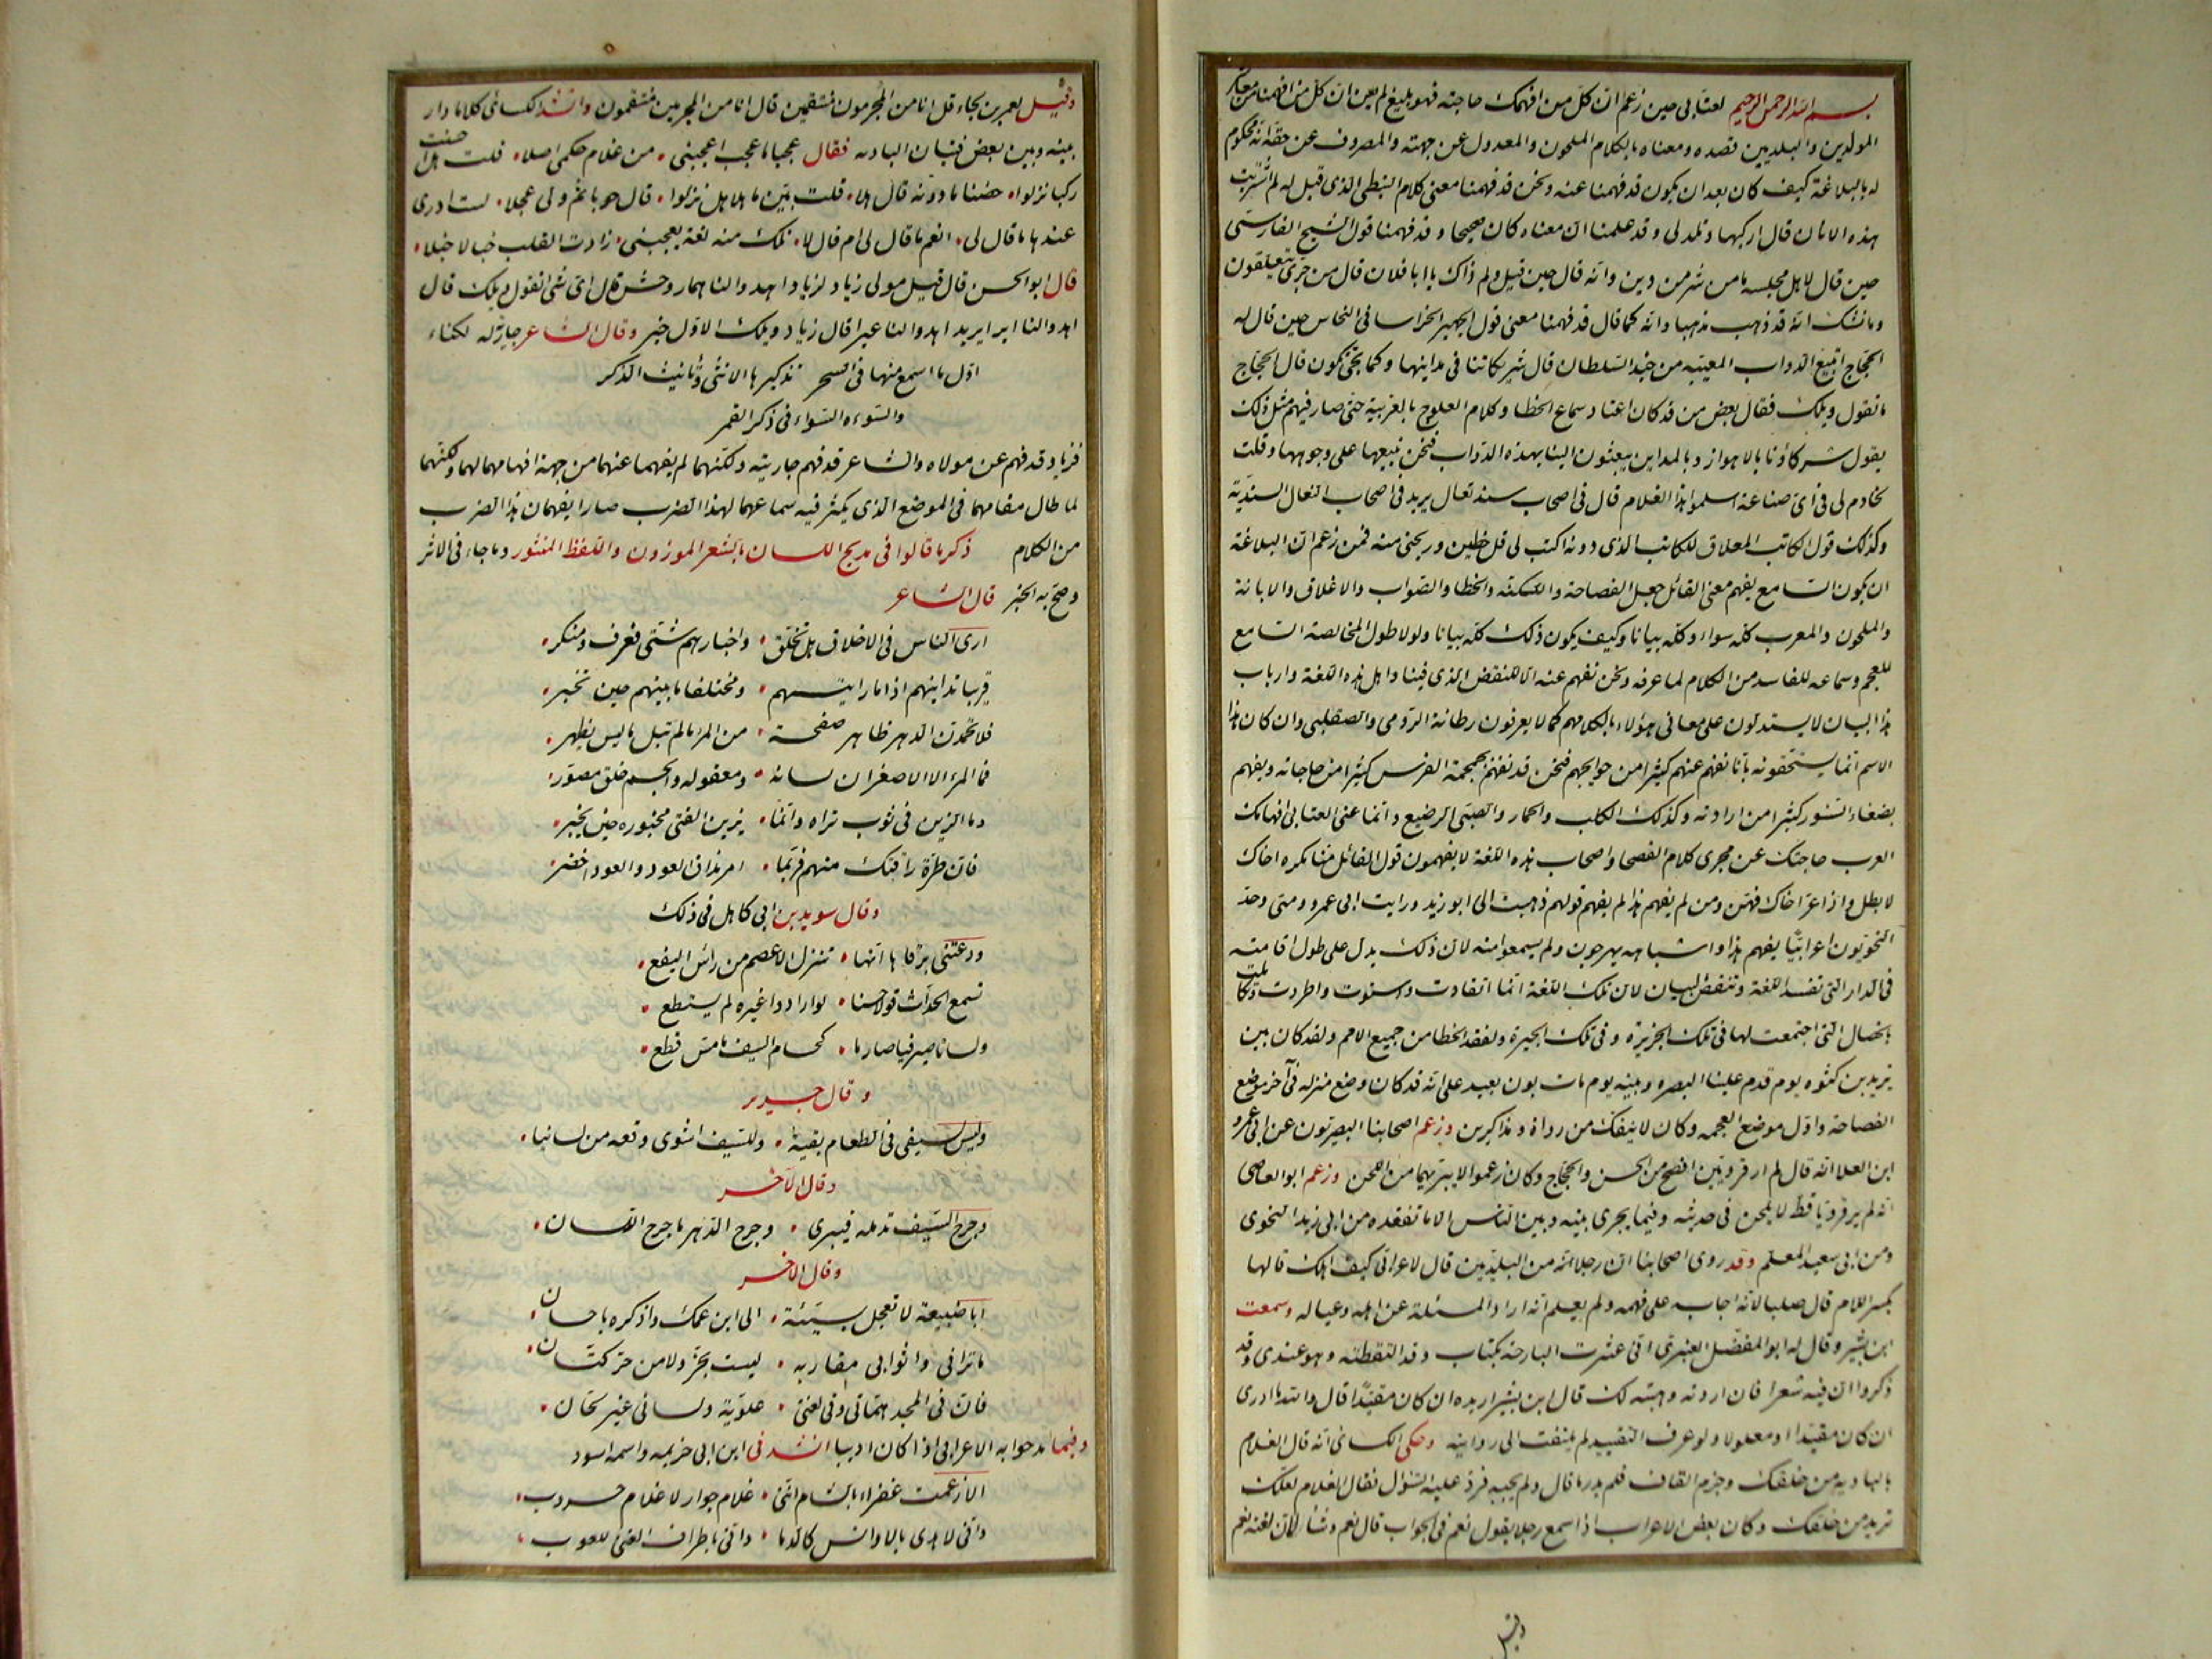 بسم الله الرحمن الرحيم العتابى حين زعم ان كل من افهمك حاجته فهو بليغ لم يعن ان كل من افهمنا من معاشر
المولدين والبلديين قصده ومعناه بالكلام الملحون والمعدول عن جهته والمصروف عن حقه انه محكوم
له بالبلاغة كيف كان بعد ان يكون قد فهمنا عنه ونحن قد فهمنا معنى كلام النبطى الذى قيل له لم اشتريت
هذه الاتان قال اركبها وتلد لى وقد علمنا ان معناه كان صحيحا وقد فهمنا قول الشيخ الفارسى
حين قال لاهل مجلسه ما من شر من دين وانه قال حين قيل ولم ذاك يا ابا فلان قال من جرى يتعلقون
وما نشك انه قد ذهب مذهبا وانه كما قال قد فهمنا معنى قول ابى الجهير الخراسانى النخاس حين قال له
الحجاج اتبيع الدواب المعيبه من جند السلطان قال شريكاتنا فى مداينها وكما تجئ تكون قال الحجاج
ما تقول ويلك فقال بعض من قد كان اعتاد سماع الخطا وكلام العلوج بالعربية حتى صار يفهم مثل ذلك
يقول شركاؤنا بالاهواز وبالمداين يبعثون الينا بهذه الدواب فنحن نبيعها على وجوهها وقلت
لخادم لى فى اى صناعة اسلموا هذا الغلام قال فى اصحاب سند نعال يريد فى اصحاب النعال السندية
وكذلك قول الكاتب المغلاق للكاتب الذى دونه اكتب لى قل خطين وريحنى منه فمن زعم ان البلاغة
ان يكون السامع يفهم معنى القائل جعل الفصاحة واللكنة والخطا والصواب والاغلاق والابانة
والملحون والمعرب كله سواء وكله بيانا وكيف يكون ذلك كله بيانا ولولا طول المخالصة السامع
للعجم وسماعه للفاسد من الكلام لما عرفه ونحن نفهم عنه الا للنقض الذى فينا واهل هذه اللغة وارباب
هذا البيان لا يستدلون على معانى هؤلاء بكلامهم كما لا يعرفون رطانة الرومى والصقلبى وان كان هذا
الاسم انما يستحقونه بانا نفهم عنهم كثيرا من حوايجهم فنحن قد نفهم بحمحمة الفرس كثيرا من حاجاته ونفهم
بضغاء السنور كثيرا من ارادته وكذلك الكلب والحمار والصبى الرضيع وانما عنى العتابى افهامك
العرب حاجتك عن مجرى كلام الفصحا واصحاب هذه اللغة لا يفهمون قول القائل منا مكره اخاك
لا بطل واذا عز اخاك فهن ومن لم يفهم هذا لم يفهم قولهم ذهبت الى ابو زيد ورايت ابى عمرو ومتى وجد
النحويون اعرابيا يفهم هذا واشباهه بهرجوه ولم يسمعوا منه لان ذلك يدل على طول اقامته
فى الدار التى تفسد اللغة وتنقض البيان لان تلك اللغة انما انقادت واستوت واطردت وتكاملت
بالخصال التى اجتمعت لها فى تلك الجزيرة وفى تلك الجيرة ولفقد الخطا من جميع الامم ولقد كان بين
يزيد بن كثوه يوم قدم علينا البصره وبينه يوم مات بون بعيد على انه قد كان وضع منزله فى آخر موضع
الفصاحة واول موضع العجمه وكان لا ينفك من رواة ومذاكرين وزعم اصحابنا البصريون عن ابى عمرو
ابن العلا انه قال لم ار قرويين افصح من الحسن والحجاج وكان زعموا لا يبريهما من اللحن وزعم ابو العاصى
انه لم ير قرويا قط لا يلحن فى حديثه وفيما يجرى بينه وبين الناس الا ما تفقده من ابى زيد النحوى
ومن ابى سعيد المعلم وقد روى اصحابنا ان رجلا من البلديين قال لاعرابى كيف اهلك قالها
بكسر اللام قال صلبا لانه اجاب على فهمه ولم يعلم انه اراد المسئلة عن اهله وعياله وسمعت
ابن بشير وقال له ابو المفضل العنبرى انى عثرت البارحة بكتاب وقد التقطته وهو عندى وقد
ذكروا ان فيه شعرا فان اردته وهبته لك قال ابن بشير اريده ان كان مقيدا قال والله ما ادرى
ان كان مقيدا او مغلولا ولو عرف التقييد لم يلتفت الى روايته وحكى الكسائى انه قال لغلام
بالباديه من خلقك وجزم القاف فلم يدر ما قال ولم يجبه فرد عليه السؤال فقال الغلام لعلك
تريد من خلقك وكان بعض الاعراب اذا سمع رجلا يقول نعم فى الجواب قال نعم وشاء لان لغته نعم
وقيل
وقيل لعمر بن لجاء قل انا من المجرمون منتقمين قال انا من المجرمين منتقمون وانشد الكسائى كلاما دار
بينه وبين بعض فتيان الباديه فقال عجبا ما عجب اعجبنى من غلام حكمى اصلا قلت هل احسنت
ركبا نزلوا حضنا ما دونه قال هلا قلت بين ما هلا هل نزلوا قال حوبا ثم ولى عجلا لست ادرى
عندها ما قال لى انعم ما قال لى ام قال لا تلك منه لغة تعجبنى زادت القلب خبالا خبلا
قال ابو الحسن قال قيل مولى زياد لزياد اهدوا لنا همار وحش قال اى شئ تقول ويلك قال
اهدوا لنا ايرا يريد اهدوا لنا عيرا قال زياد ويلك الاول خير وقال الشاعر جارية له لكناء
اول ما اسمع منها فى السحر تذكيرها الانثى وتانيث الذكر
والسوءة السواء فى ذكر القمر
فزياد قد فهم عن مولاه والشاعر قد فهم جاريته ولكنهما لم يفهما عنهما من جهة افهامهما لهما ولكنهما
لما طال مقامهما فى الموضع الذى يكثر فيه سماعهما لهذا الضرب صارا يفهمان هذا الضرب
من الكلام ذكر ما قالوا فى مديح اللسان بالشعر الموزون واللفظ المنثور وما جاء فى الاثر
وصح به الخبر قال الشاعر
ارى الناس فى الاخلاق اهل تخلق واخبارهم شتى فعرف ومنكر
قريبا تدانيهم اذا ما رايتهم ومختلفا ما بينهم حين تخبر
فلا تحمدن الدهر ظاهر صفحة من المرء ما لم تبل ما ليس يظهر
فما المرء الا الاصغران لسانه ومعقوله والجسم خلق مصور
وما الزين فى ثوب تراه وانما يزين الفتى مخبوره حين يخبر
فان طرة راقتك منهم فربما امر مذاق العود والعود اخضر
وقال سويد بن ابى كاهل فى ذلك
ودعتنى برقاها انها تنزل الاعصم من راس اليفع
تسمع الحداث قولا حسنا لو ارادوا غيره لم يستطع
ولسانا صيرفيا صارما كحسام السيف ما مس قطع
وقال جرير
وليس لسيفى فى العظام بقية وللسيف اشوى وقعة من لسانيا
وقال الآخر
وجرح السيف تدمله فيبرى وجرح الدهر ما جرح اللسان
وقال الاخر
ابا ضبيعة لا تعجل بسيئة الى ابن عمك واذكره باحسان
ما ترانى واثوابى مقاربه ليست بخز ولا من حر كتان
فان فى المجد هماتى وفى لغتى علوية ولسانى غير لحان
وفيما مدحوا به الاعرابى اذا كان اديبا انشدنى ابن ابى خزيمه واسمه اسود
الا زعمت عفراء بالشام اننى غلام جوار لا غلام حروب
وانى لاهدى بالاوانس كالدما وانى باطراف القنى للعوب